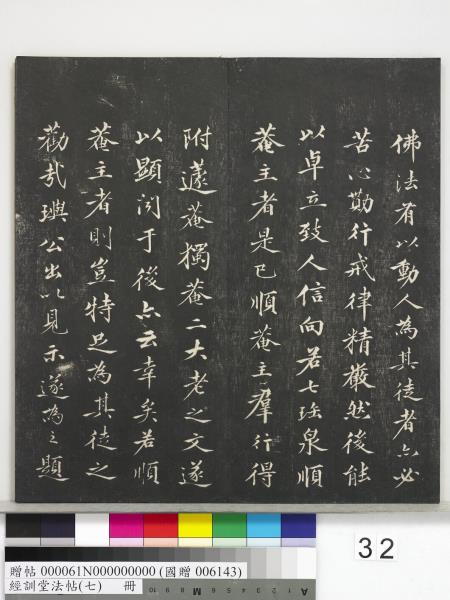 佛法有以動人為其徒者亦必
苦心勤行戒律精嚴然後能
以卓立致人信向若七珎泉順
菴主者是已順菴主群行得
附蘧菴獨菴二大老之文遂
以顯闻于後亦云幸矣若順
菴主者則豈特足為其徒之
勸哉璵公出以見示遂為之題
32
贈帖 000061N000000000 (國贈 006143)
經訓堂法帖(七) 冊